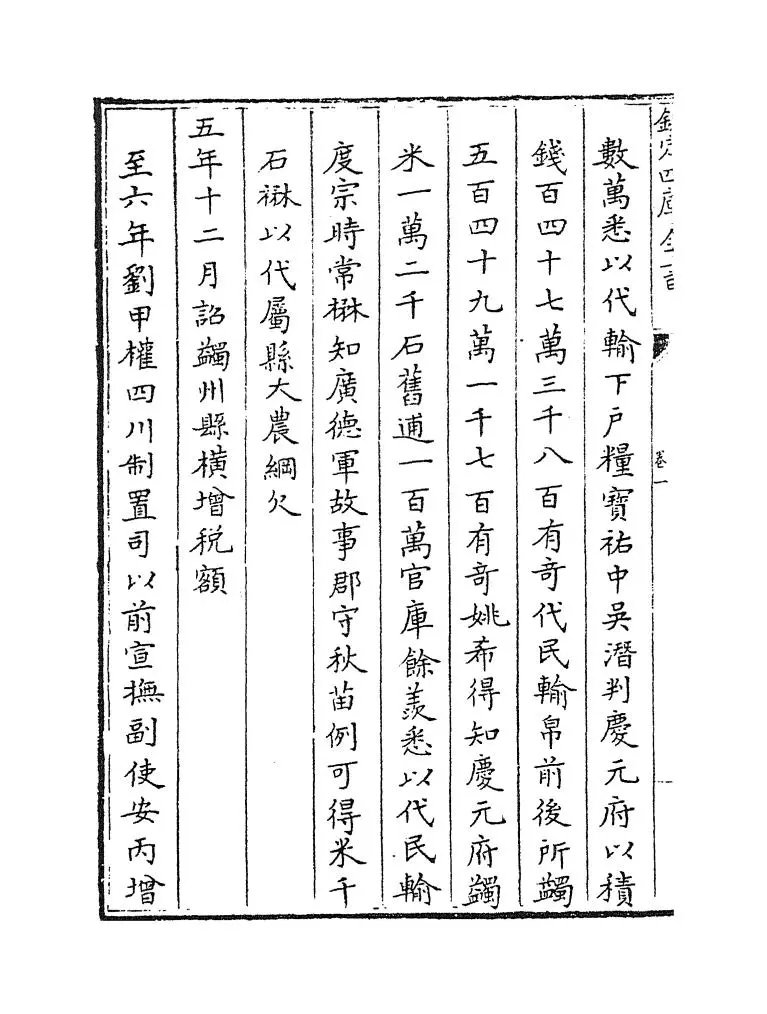 欽定四庫全書
卷一
數萬悉以代輸下戶糧寶祐中吳潛判慶元府以積
錢百四十七萬三千八百有奇代民輸帛前後所蠲
五百四十九萬一千七百有奇姚希得知慶元府蠲
米一萬二千石舊逋一百萬官庫餘羨悉以代民輸
度宗時常楙知廣德軍故事郡守秋苗例可得米千
石楙以代屬縣大農綱欠
五年十二月詔蠲州縣橫增税額
至六年劉甲權四川制置司以前宣撫副使安丙增